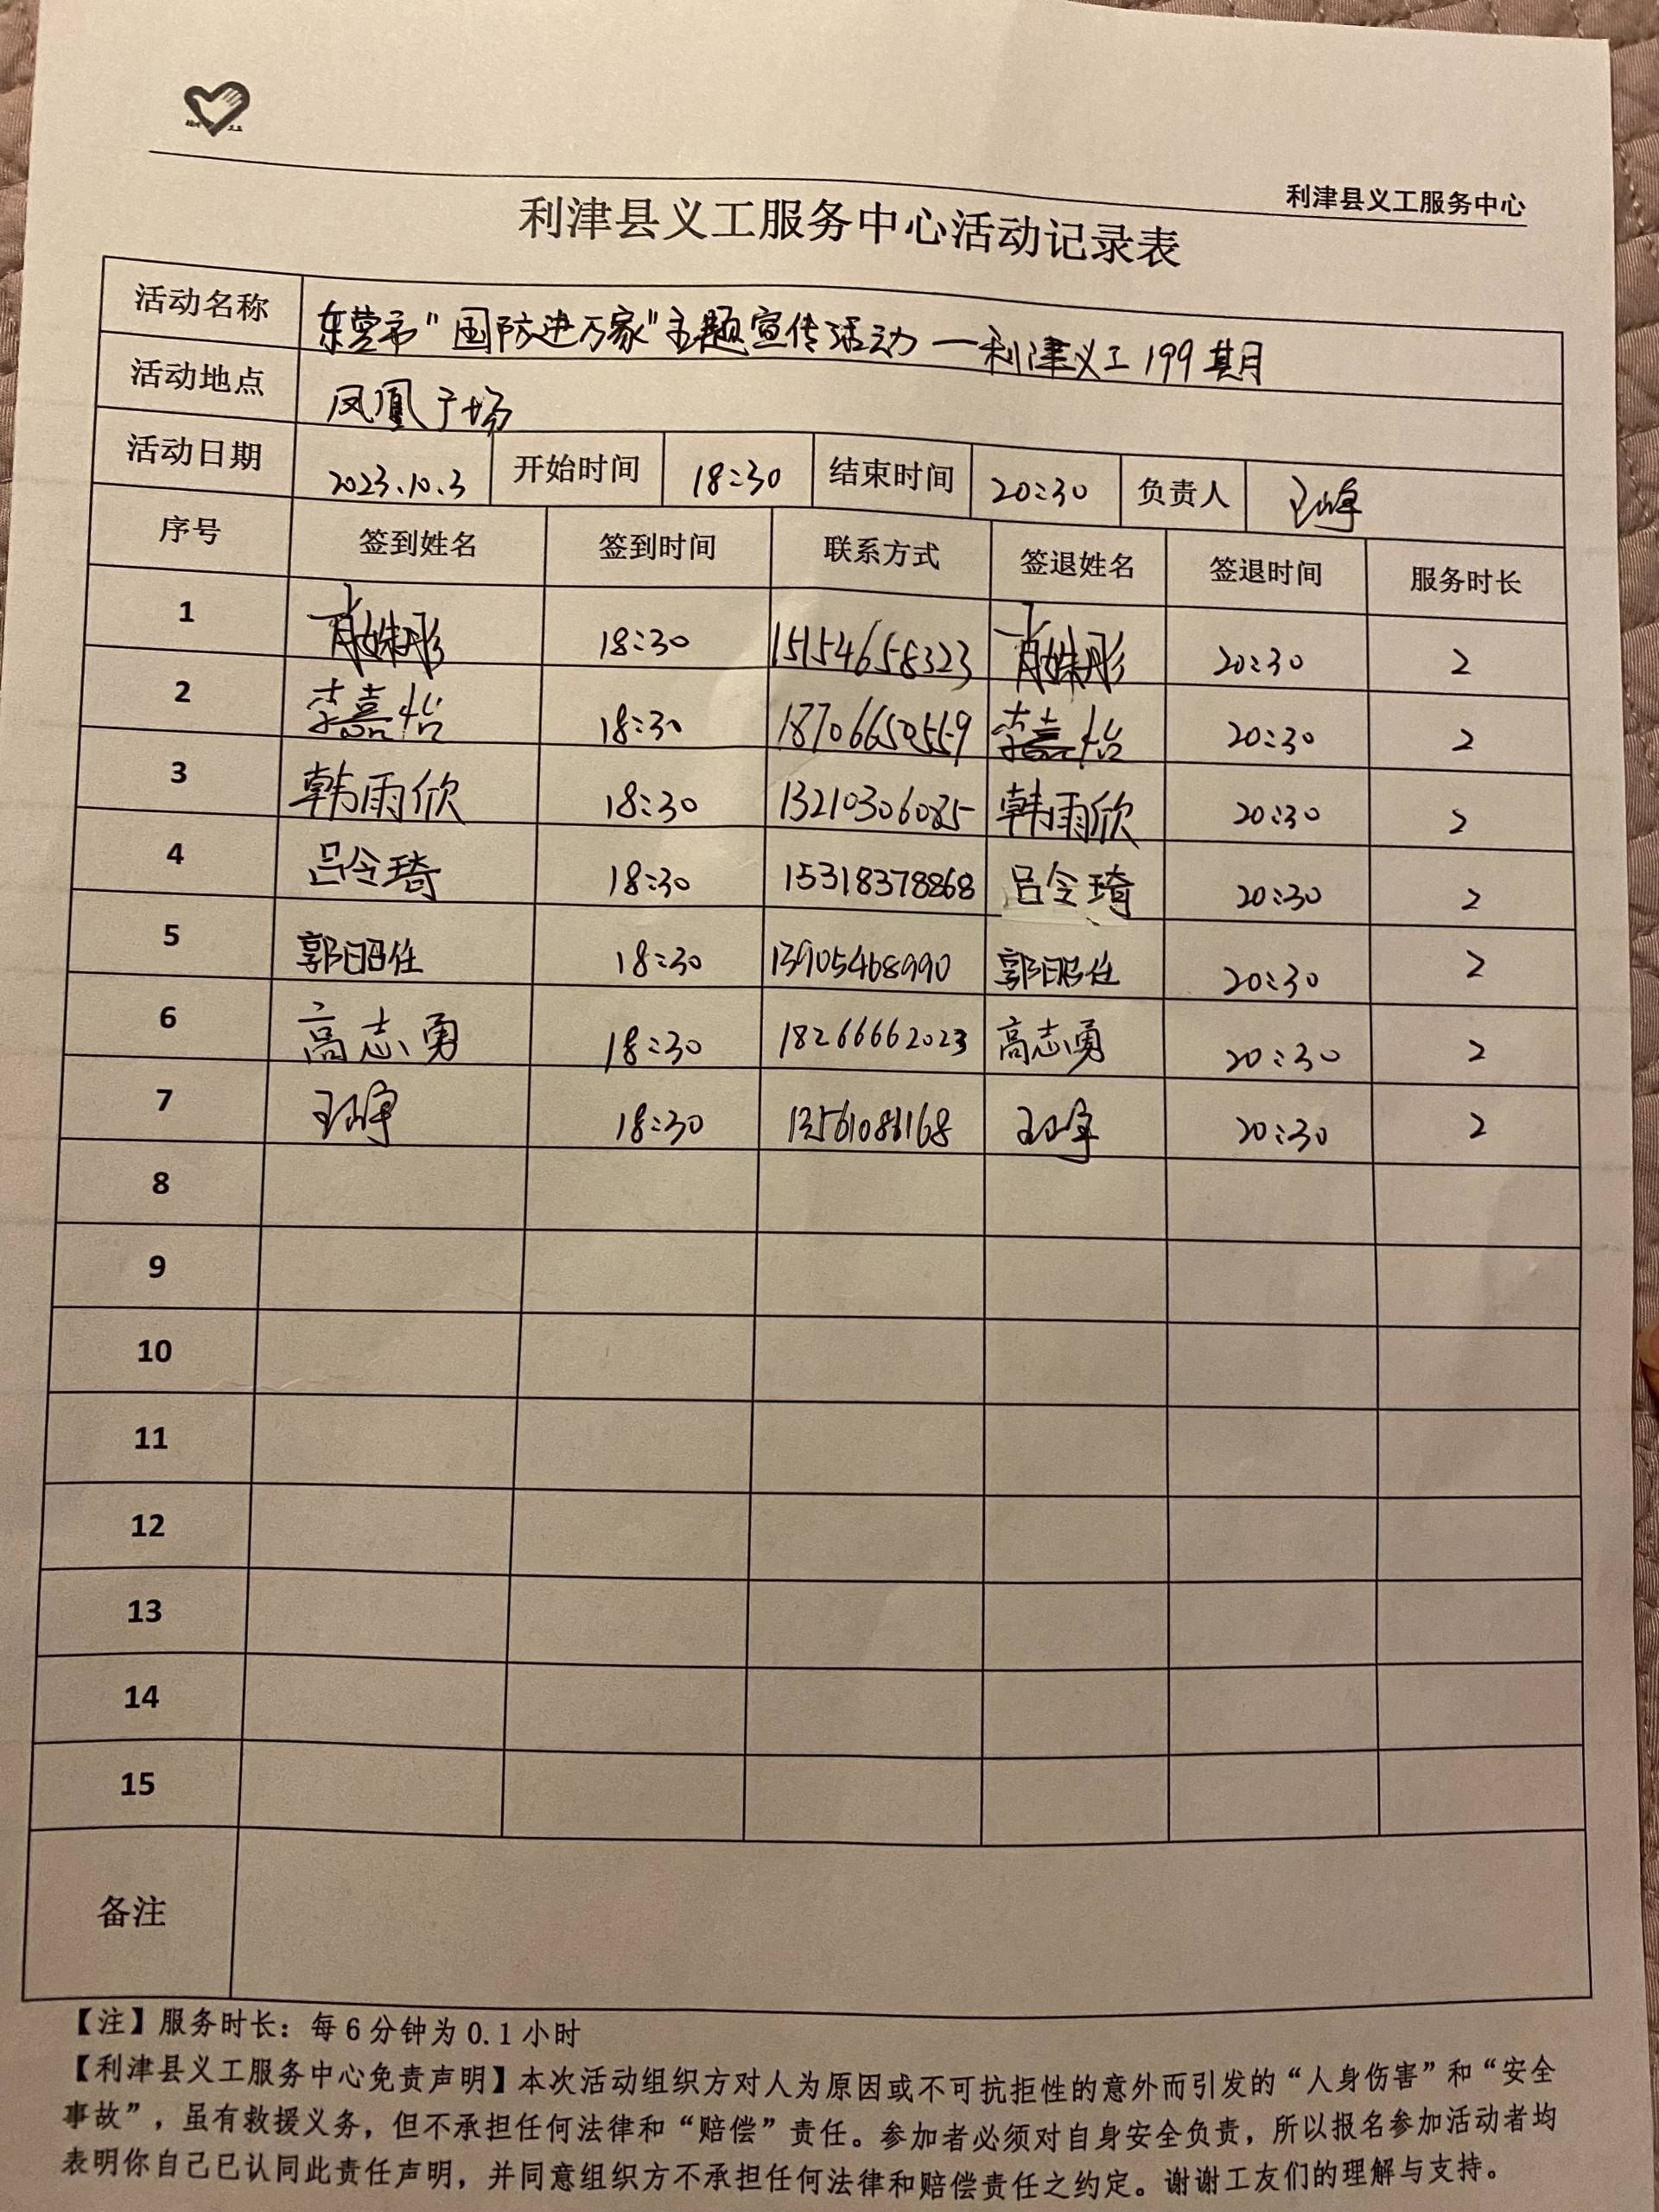 利津县义工服务中心
利津县义工服务中心活动记录表
活动名称 东营市"国防进万家"主题宣传活动—利津义工199期
活动地点 凤凰广场
活动日期 2023.10.3 开始时间 18:30 结束时间 20:30 负责人 王峰
序号 签到姓名 签到时间 联系方式 签退姓名 签退时间 服务时长
1 肖姝彤 18:30 15154658323 肖姝彤 20:30 2
2 李嘉怡 18:30 18706650559 李嘉怡 20:30 2
3 韩雨欣 18:30 13210306085 韩雨欣 20:30 2
4 吕令琦 18:30 15318378868 吕令琦 20:30 2
5 郭昭任 18:30 13905468990 郭昭任 20:30 2
6 高志勇 18:30 18266662023 高志勇 20:30 2
7 18:30 20:30 2
8
9
10
11
12
13
14
15
备注
【注】服务时长：每6分钟为0.1小时
【利津县义工服务中心免责声明】本次活动组织方对人为原因或不可抗拒性的意外而引发的“人身伤害”和“安全
事故”，虽有救援义务，但不承担任何法律和“赔偿”责任。参加者必须对自身安全负责，所以报名参加活动者均
表明你自己已认同此责任声明，并同意组织方不承担任何法律和赔偿责任之约定。谢谢工友们的理解与支持。